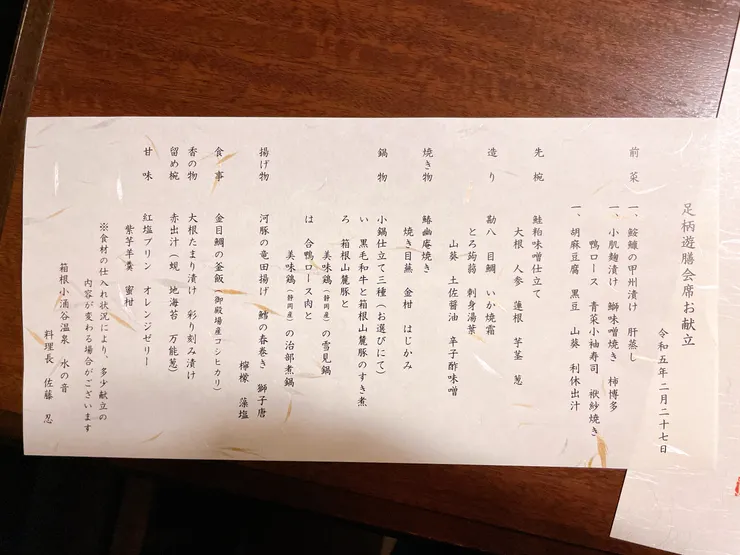 足柄遊膳会席お献立
令和五年二月二十七日
前菜 一、鮟鱇の甲州漬け 肝蒸し
一、小肌麹漬け 鰤味噌焼き 柿博多
鴨ロース 青菜小袖寿司 袱紗焼き
一、胡麻豆腐 黒豆 山葵 利休出汁
先椀 鮭粕味噌仕立て
大根 人参 蓮根 芋茎 葱
造り 勘八 目鯛 いか焼霜
とろ蒟蒻 刺身湯葉
山葵 土佐醤油 辛子酢味噌
焼き物 鰆幽庵焼き
焼き目蕪 金柑 はじかみ
鍋物 小鍋仕立て三種(お選びにて)
い 黒毛和牛と箱根山麓豚のすき煮
ろ 箱根山麓豚と
美味鶏(静岡産)の雪見鍋
は 合鴨ロース肉と
美味鶏(静岡産)の治部煮鍋
揚げ物 河豚の竜田揚げ 鱈の春巻き 獅子唐
檸檬 藻塩
食事 金目鯛の釜飯(御殿場産コシヒカリ)
香の物 大根たまり漬け 彩り刻み漬け
留め椀 赤出汁(蜆 地海苔 万能葱)
甘味 紅塩プリン オレンジゼリー
紫芋羊羹 蜜柑
※食材の仕入れ状況により、多少献立の
内容が変わる場合がございます
箱根小涌谷温泉 水の音
料理長 佐藤 忍